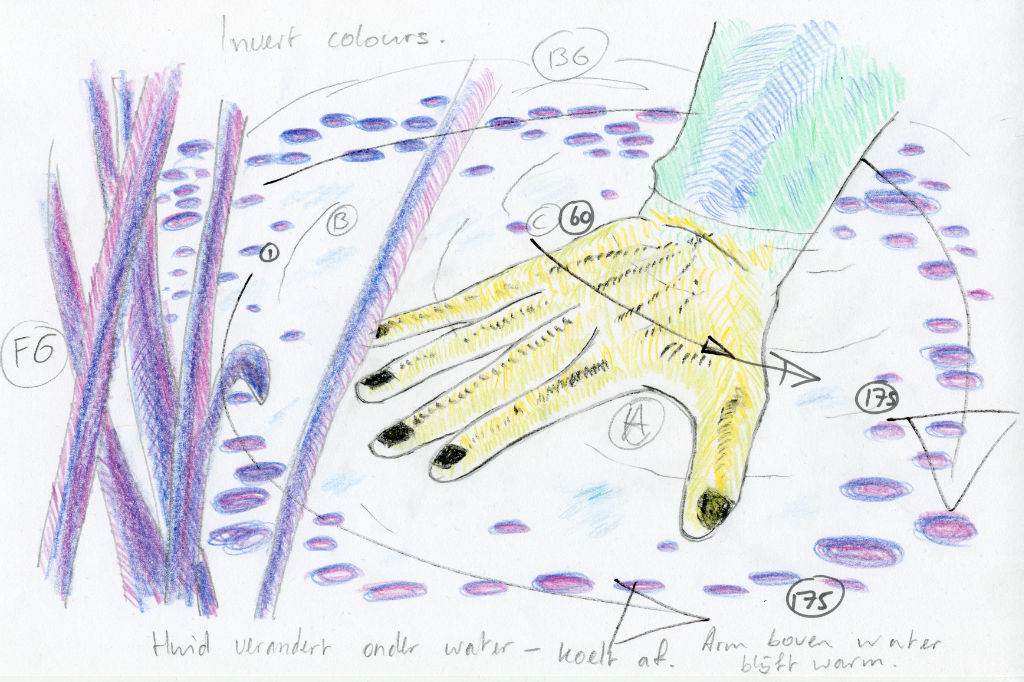 Invert colours.
BG
B
C 60
1
FG
175
A
175
Huid verandert onder water – koelt af. Arm boven water
blijft warm.